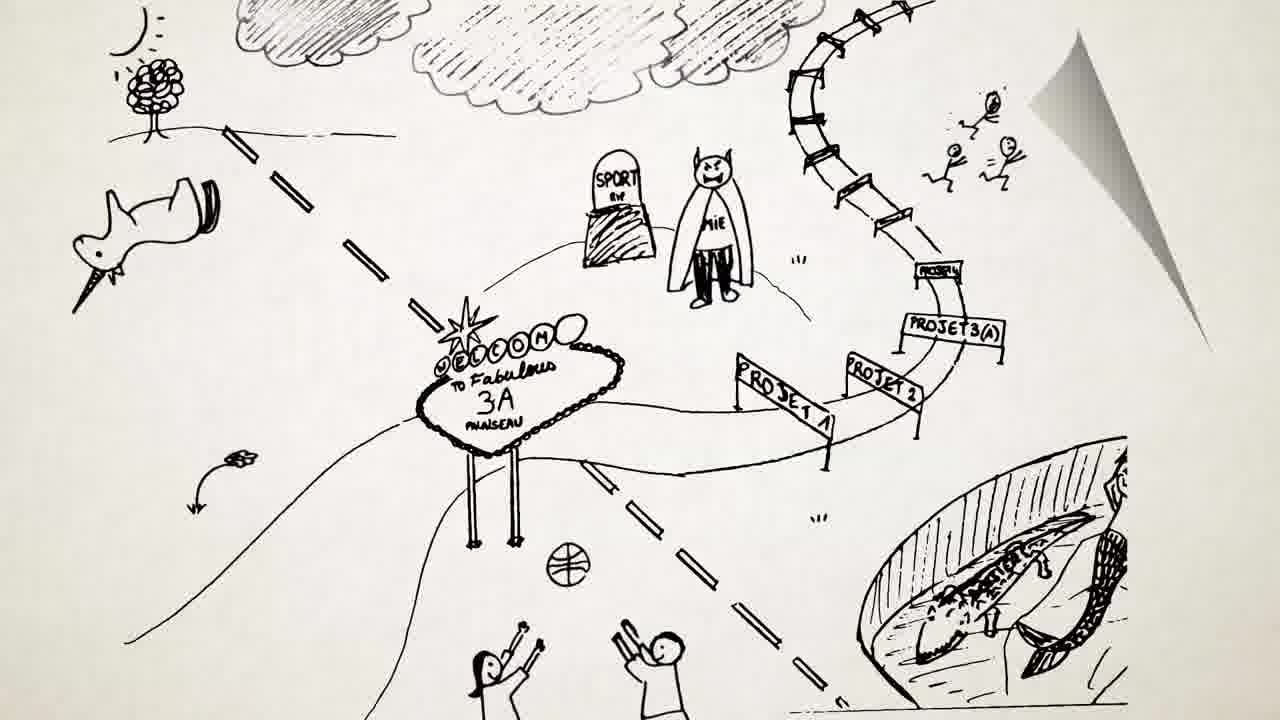 SPORT
RIP
MiE
WELCOM
TO Fabulous
3A
PALAISEAU
PROJET 4
PROJET 3(A)
PROJET 2
PROJET 1